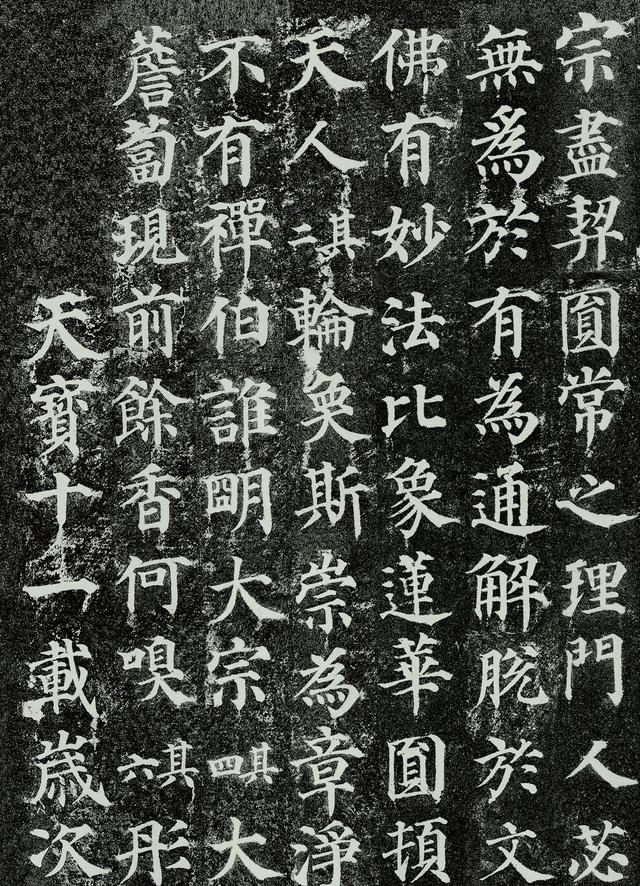 宗盡契圓常之理門人苾
無爲於有為通解脫於文
佛有妙法比象蓮華圓頓
天人其二輪奐斯崇為章淨
不有禪伯誰明大宗其四大
薝蔔現前餘香何嗅其六彤
天寶十一載歲次